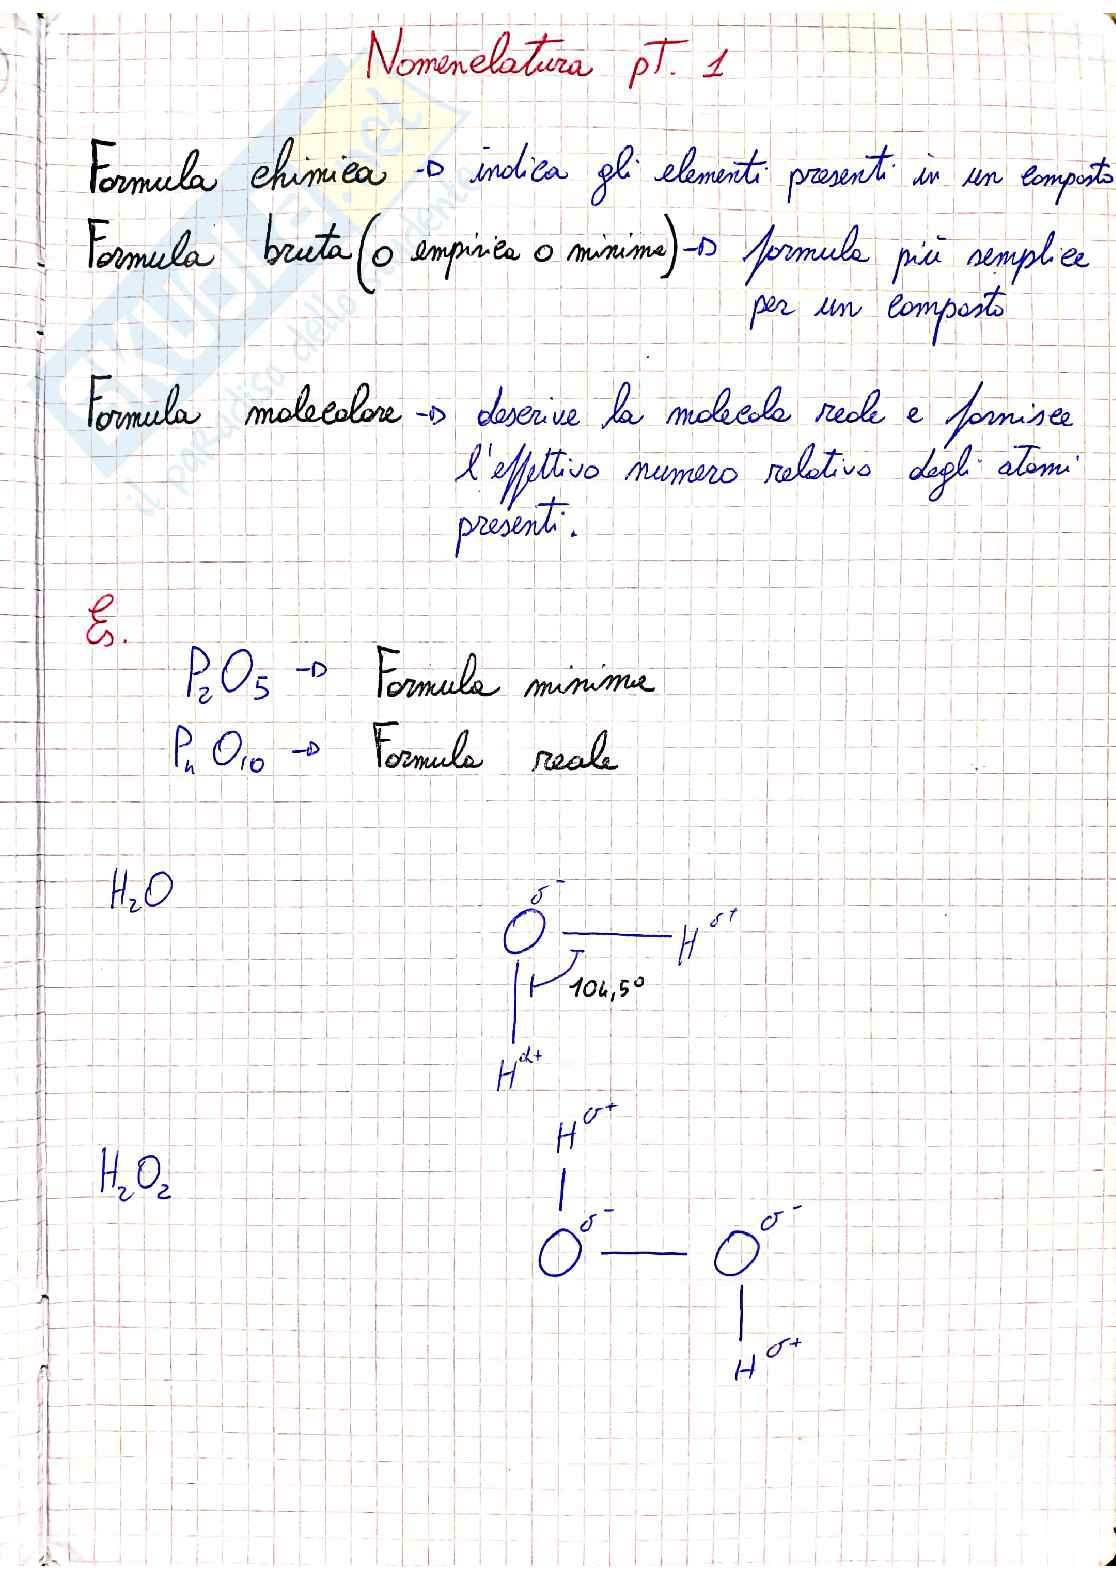 Nomenclatura pt. 1
Formula chimica → indica gli elementi presenti in un composto
Formula bruta (o empirica o minima) → formula più semplice
per un composto
Formula molecolare → descrive la molecola reale e fornisce
l'effettivo numero relativo degli atomi
presenti.
Es.
P₂O₅ → Formula minima
P₄O₁₀ → Formula reale
H₂O
O δ⁻
H δ⁺
104,5°
H δ⁺
H δ⁺
H₂O₂
O δ⁻ O δ⁻
H δ⁺
SKUOLA.net
il paradiso dello studente